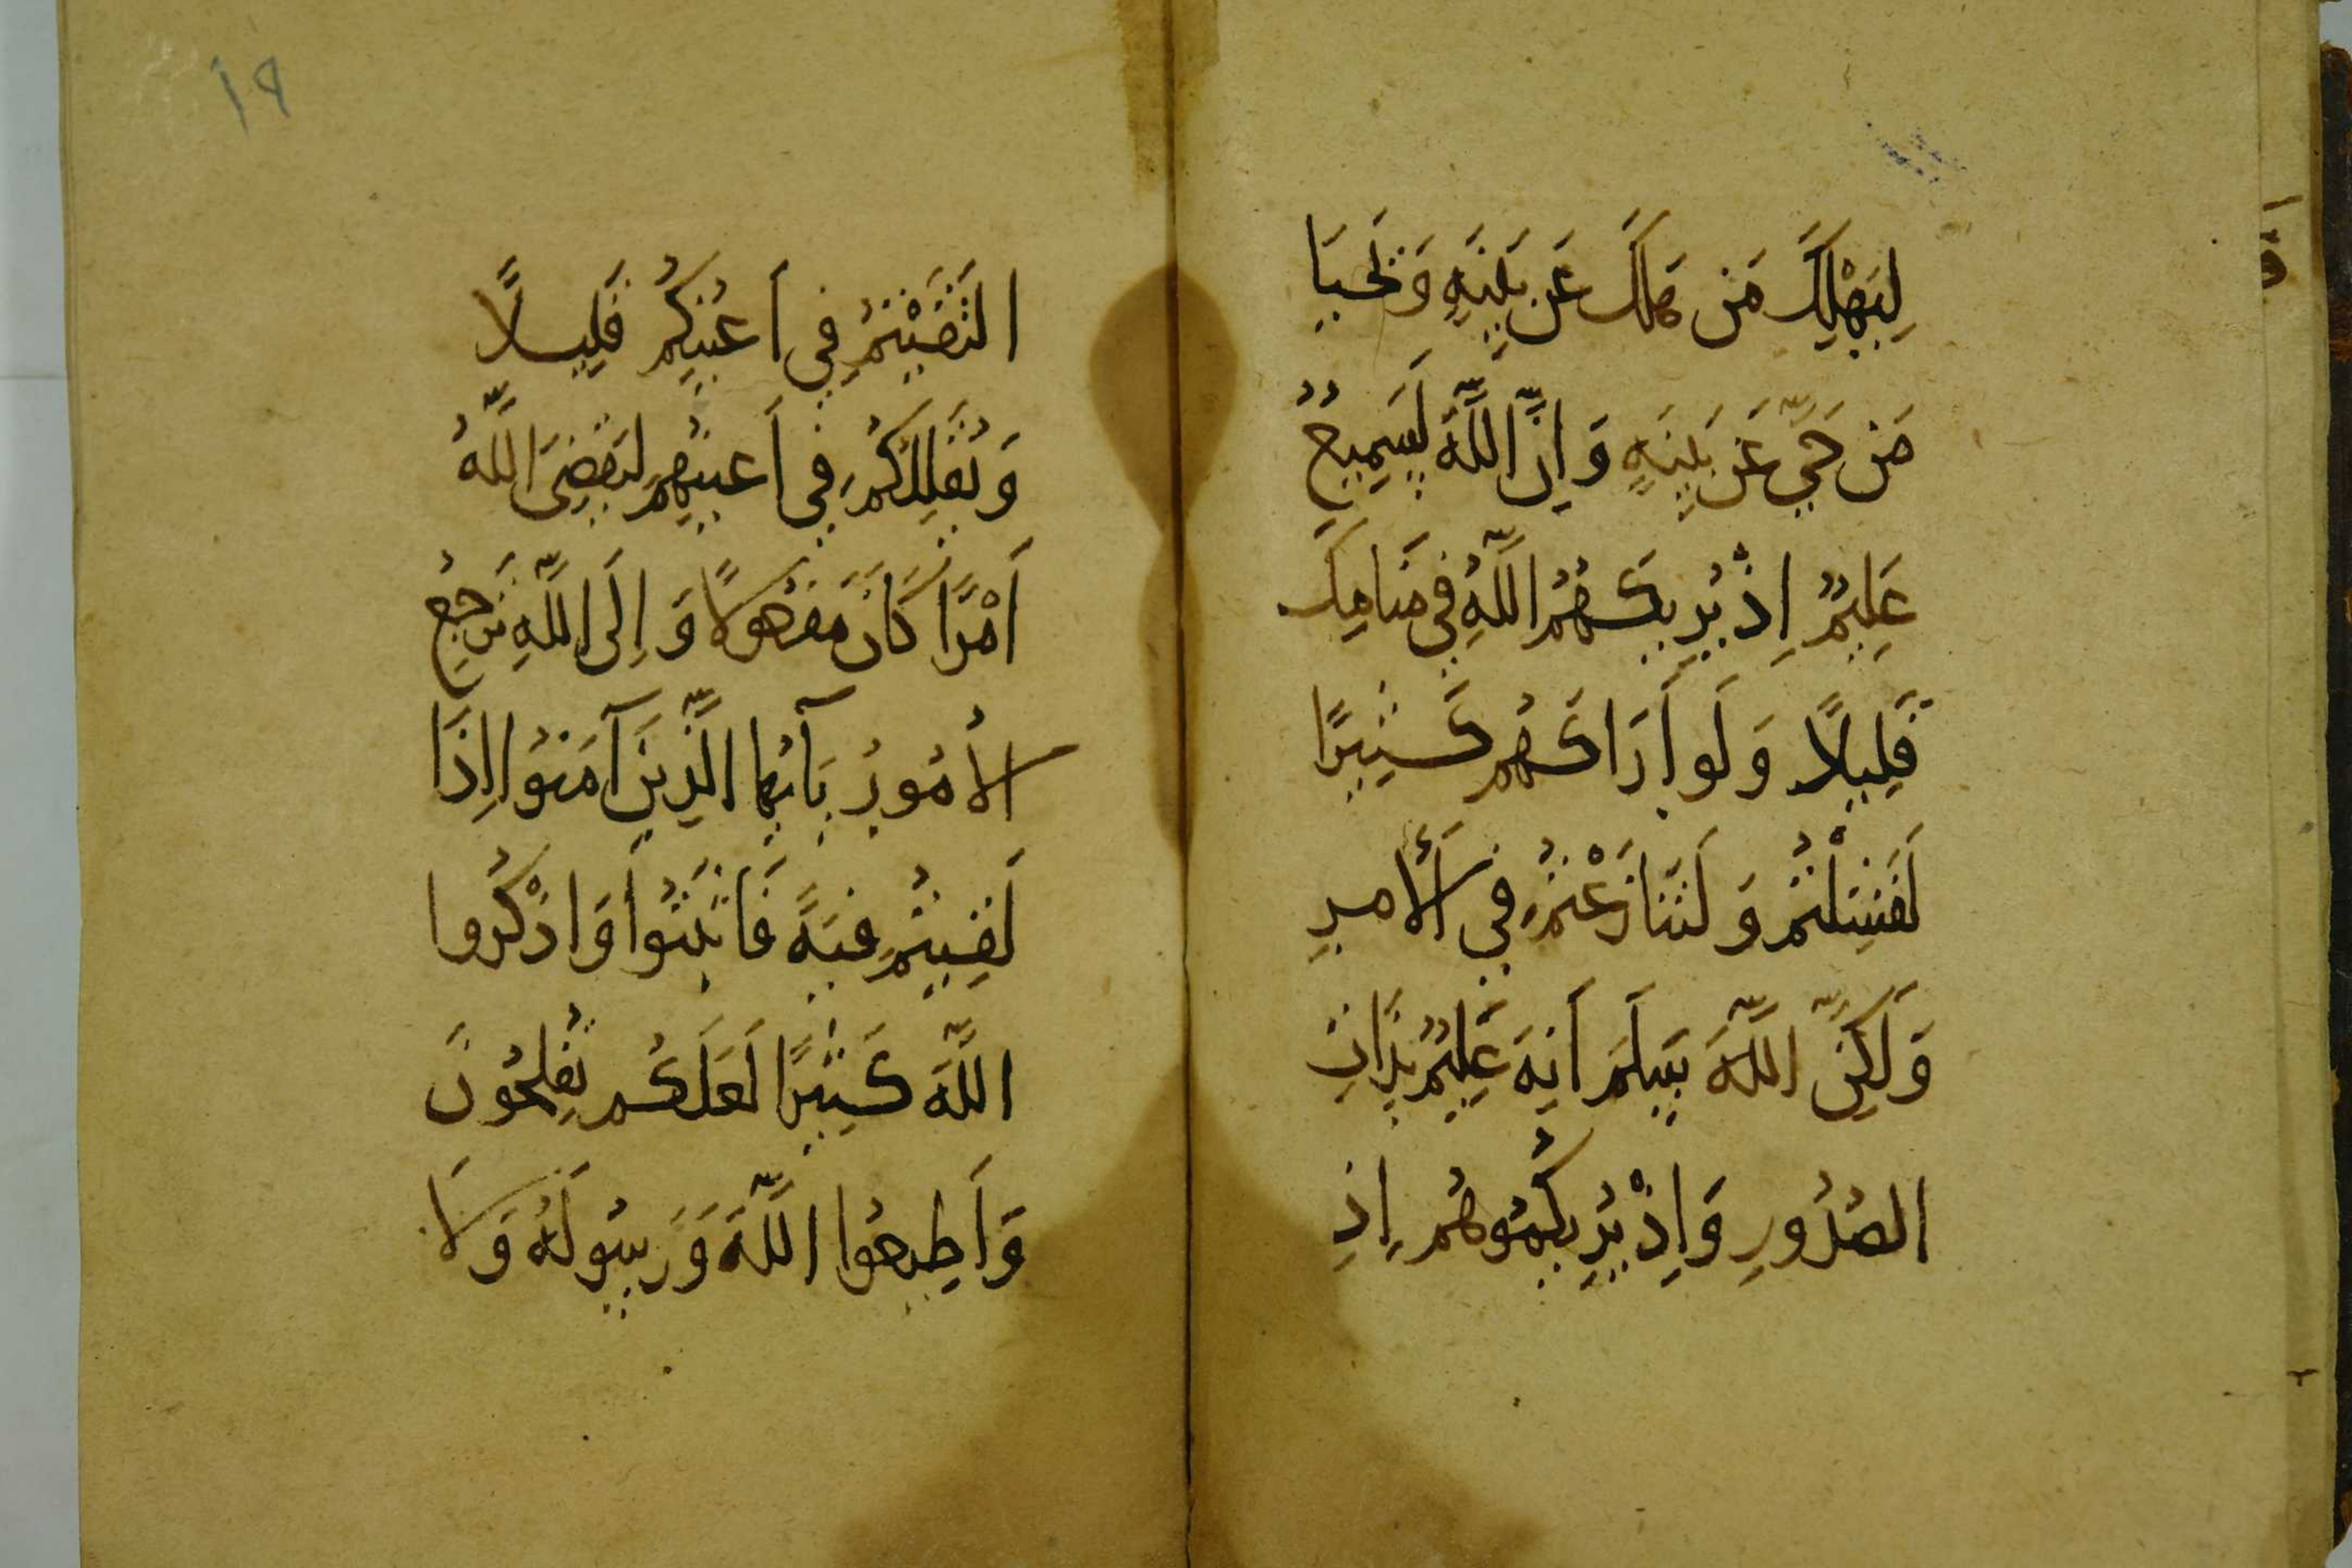 لِيَهْلِكَ مَن هَلَكَ عَن بَيِّنَةٍ وَيَحْيَا
مَن حَيَّ عَن بَيِّنَةٍ وَاِنَّ اللَّهَ لَسَمِيعٌ
عَلِيمٌ اِذْ يُرِيكَهُمُ اللَّهُ فِي مَنَامِكَ
قَلِيلًا وَلَو أَرَاكَهُم كَثِيرًا
لَفَشِلْتُم وَلَتَنَازَعْتُم فِي الْأَمرِ
وَلَكِنَّ اللَّهَ سَلَّمَ اِنَّهُ عَلِيمٌ بِذَاتِ
الصُدُورِ وَاِذْ يُرِيكُمُوهُم اِذِ
التَقَيْتُم فِي أَعيُنِكُم قَلِيلًا
وَيُقَلِّلُكُم فِي أَعيُنِهِم لِيَقضِيَ اللَّهُ
أَمْرًا كَانَ مَفعُولًا وَاِلَى اللَّهِ تُرجَعُ
الأُمُورُ يَآ أَيُّهَا الَّذِينَ آمَنُوا اِذَا
لَقِيتُم فِئَةً فَاثبُتُوا وَاذْكُرُوا
اللَّهَ كَثِيرًا لَعَلَكُم تُفلِحُونَ
وَأَطِيعُوا اللَّهَ وَرَسُولَهُ وَلَا
١٩